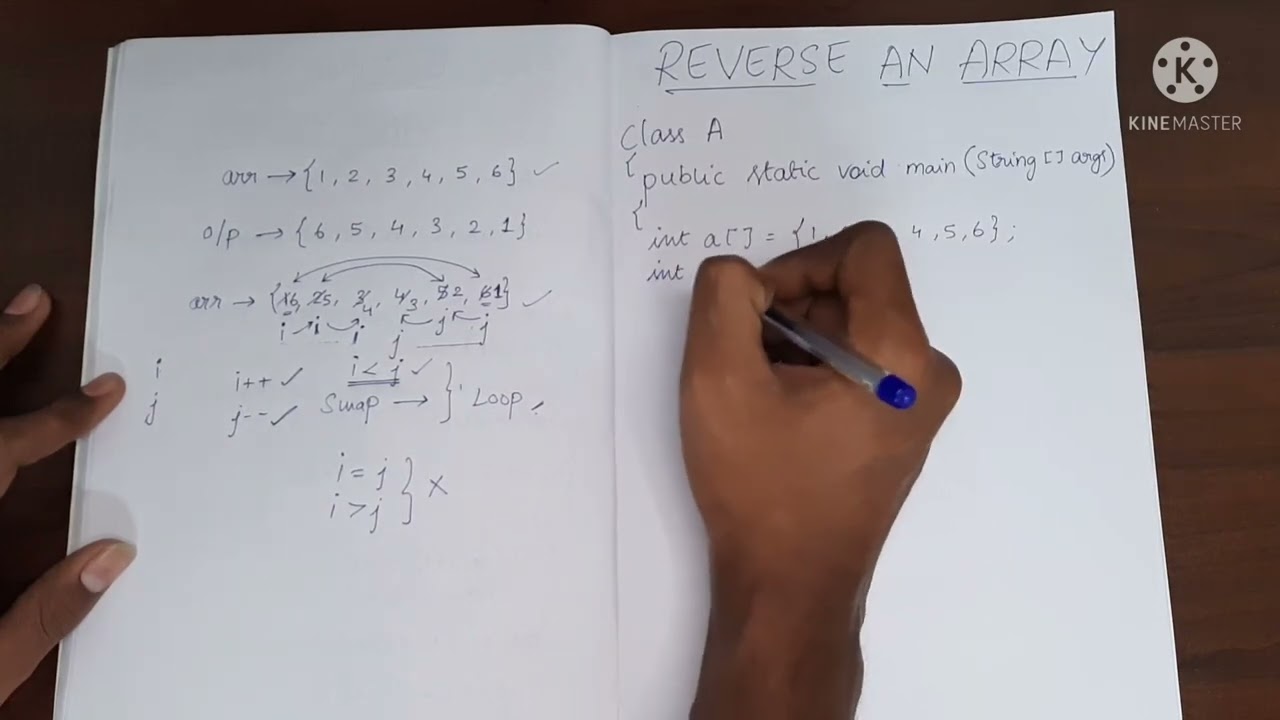 arr → {1, 2, 3, 4, 5, 6} ✓
o/p → {6, 5, 4, 3, 2, 1}
arr → {1̶6, 2̶5, 3̶4, 4̶3, 5̶2, 6̶1} ✓
i i i j j j
i i++ ✓ i < j ✓
j j-- ✓ Swap → } Loop
i = j
i > j } ×
REVERSE AN ARRAY
Class A
{ public static void main (String [] args)
{
int a[] = {1, 4, 5, 6};
int
KINEMASTER